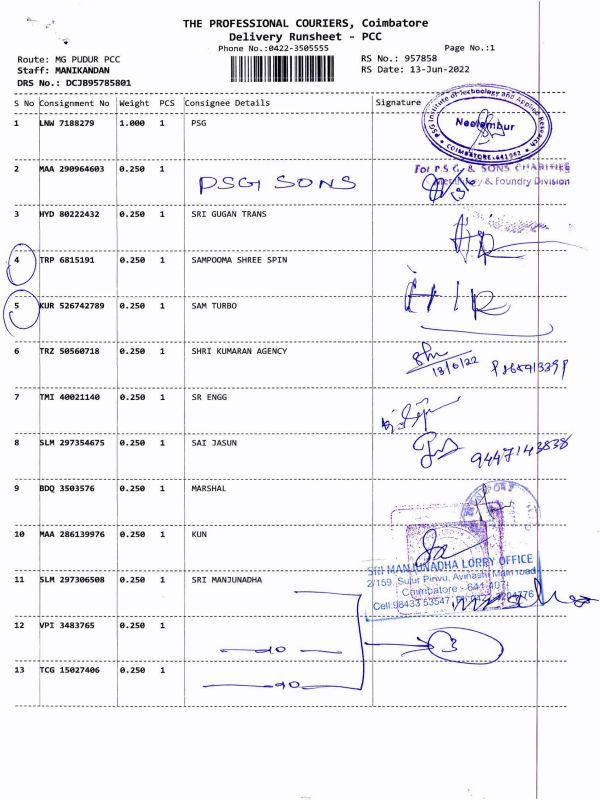 THE PROFESSIONAL COURIERS, Coimbatore
Delivery Runsheet - PCC
Phone No.:0422-3505555
Page No.:1
Route: MG PUDUR PCC
RS No.: 957858
Staff: MANIKANDAN
RS Date: 13-Jun-2022
DRS No.: DCJB95785801
S No Consignment No Weight PCS Consignee Details Signature
1 LNW 7188279 1.000 1 PSG
PSG Institute of Technology and Applied Research
Neelambur
COIMBATORE-641062
2 MAA 290964603 0.250 1 PSG SONS
For P.S.G. & SONS CHARITIES
& Foundry Division
3 HYD 80222432 0.250 1 SRI GUGAN TRANS
4 TRP 6815191 0.250 1 SAMPOOMA SHREE SPIN
5 KUR 526742789 0.250 1 SAM TURBO
6 TRZ 50560718 0.250 1 SHRI KUMARAN AGENCY
13/6/22
7 TMI 40021140 0.250 1 SR ENGG
8 SLM 297354675 0.250 1 SAI JASUN
9447143838
9 BDQ 3503576 0.250 1 MARSHAL
10 MAA 286139976 0.250 1 KUN
11 SLM 297306508 0.250 1 SRI MANJUNADHA
SRI MANJUNADHA LORRY OFFICE
2/159, Sulur Pirivu, Avinashi Main road
Coimbatore - 641 407
Cell:98433 53547
12 VPI 3483765 0.250 1 —do—
3
13 TCG 15027406 0.250 1 —do—